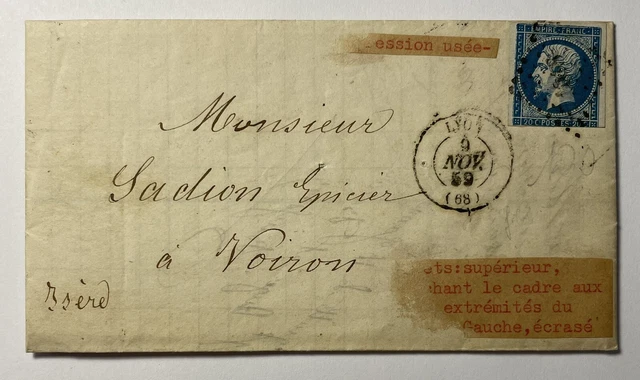 ession usée-
EMPIRE FRANC
20 C POS ES 20
LYON
9
NOV.
59
(68)
Monsieur
Sadion Epicier
à Voiron
Isère
ets:supérieur,
chant le cadre aux
extrémités du
Gauche,écrasé